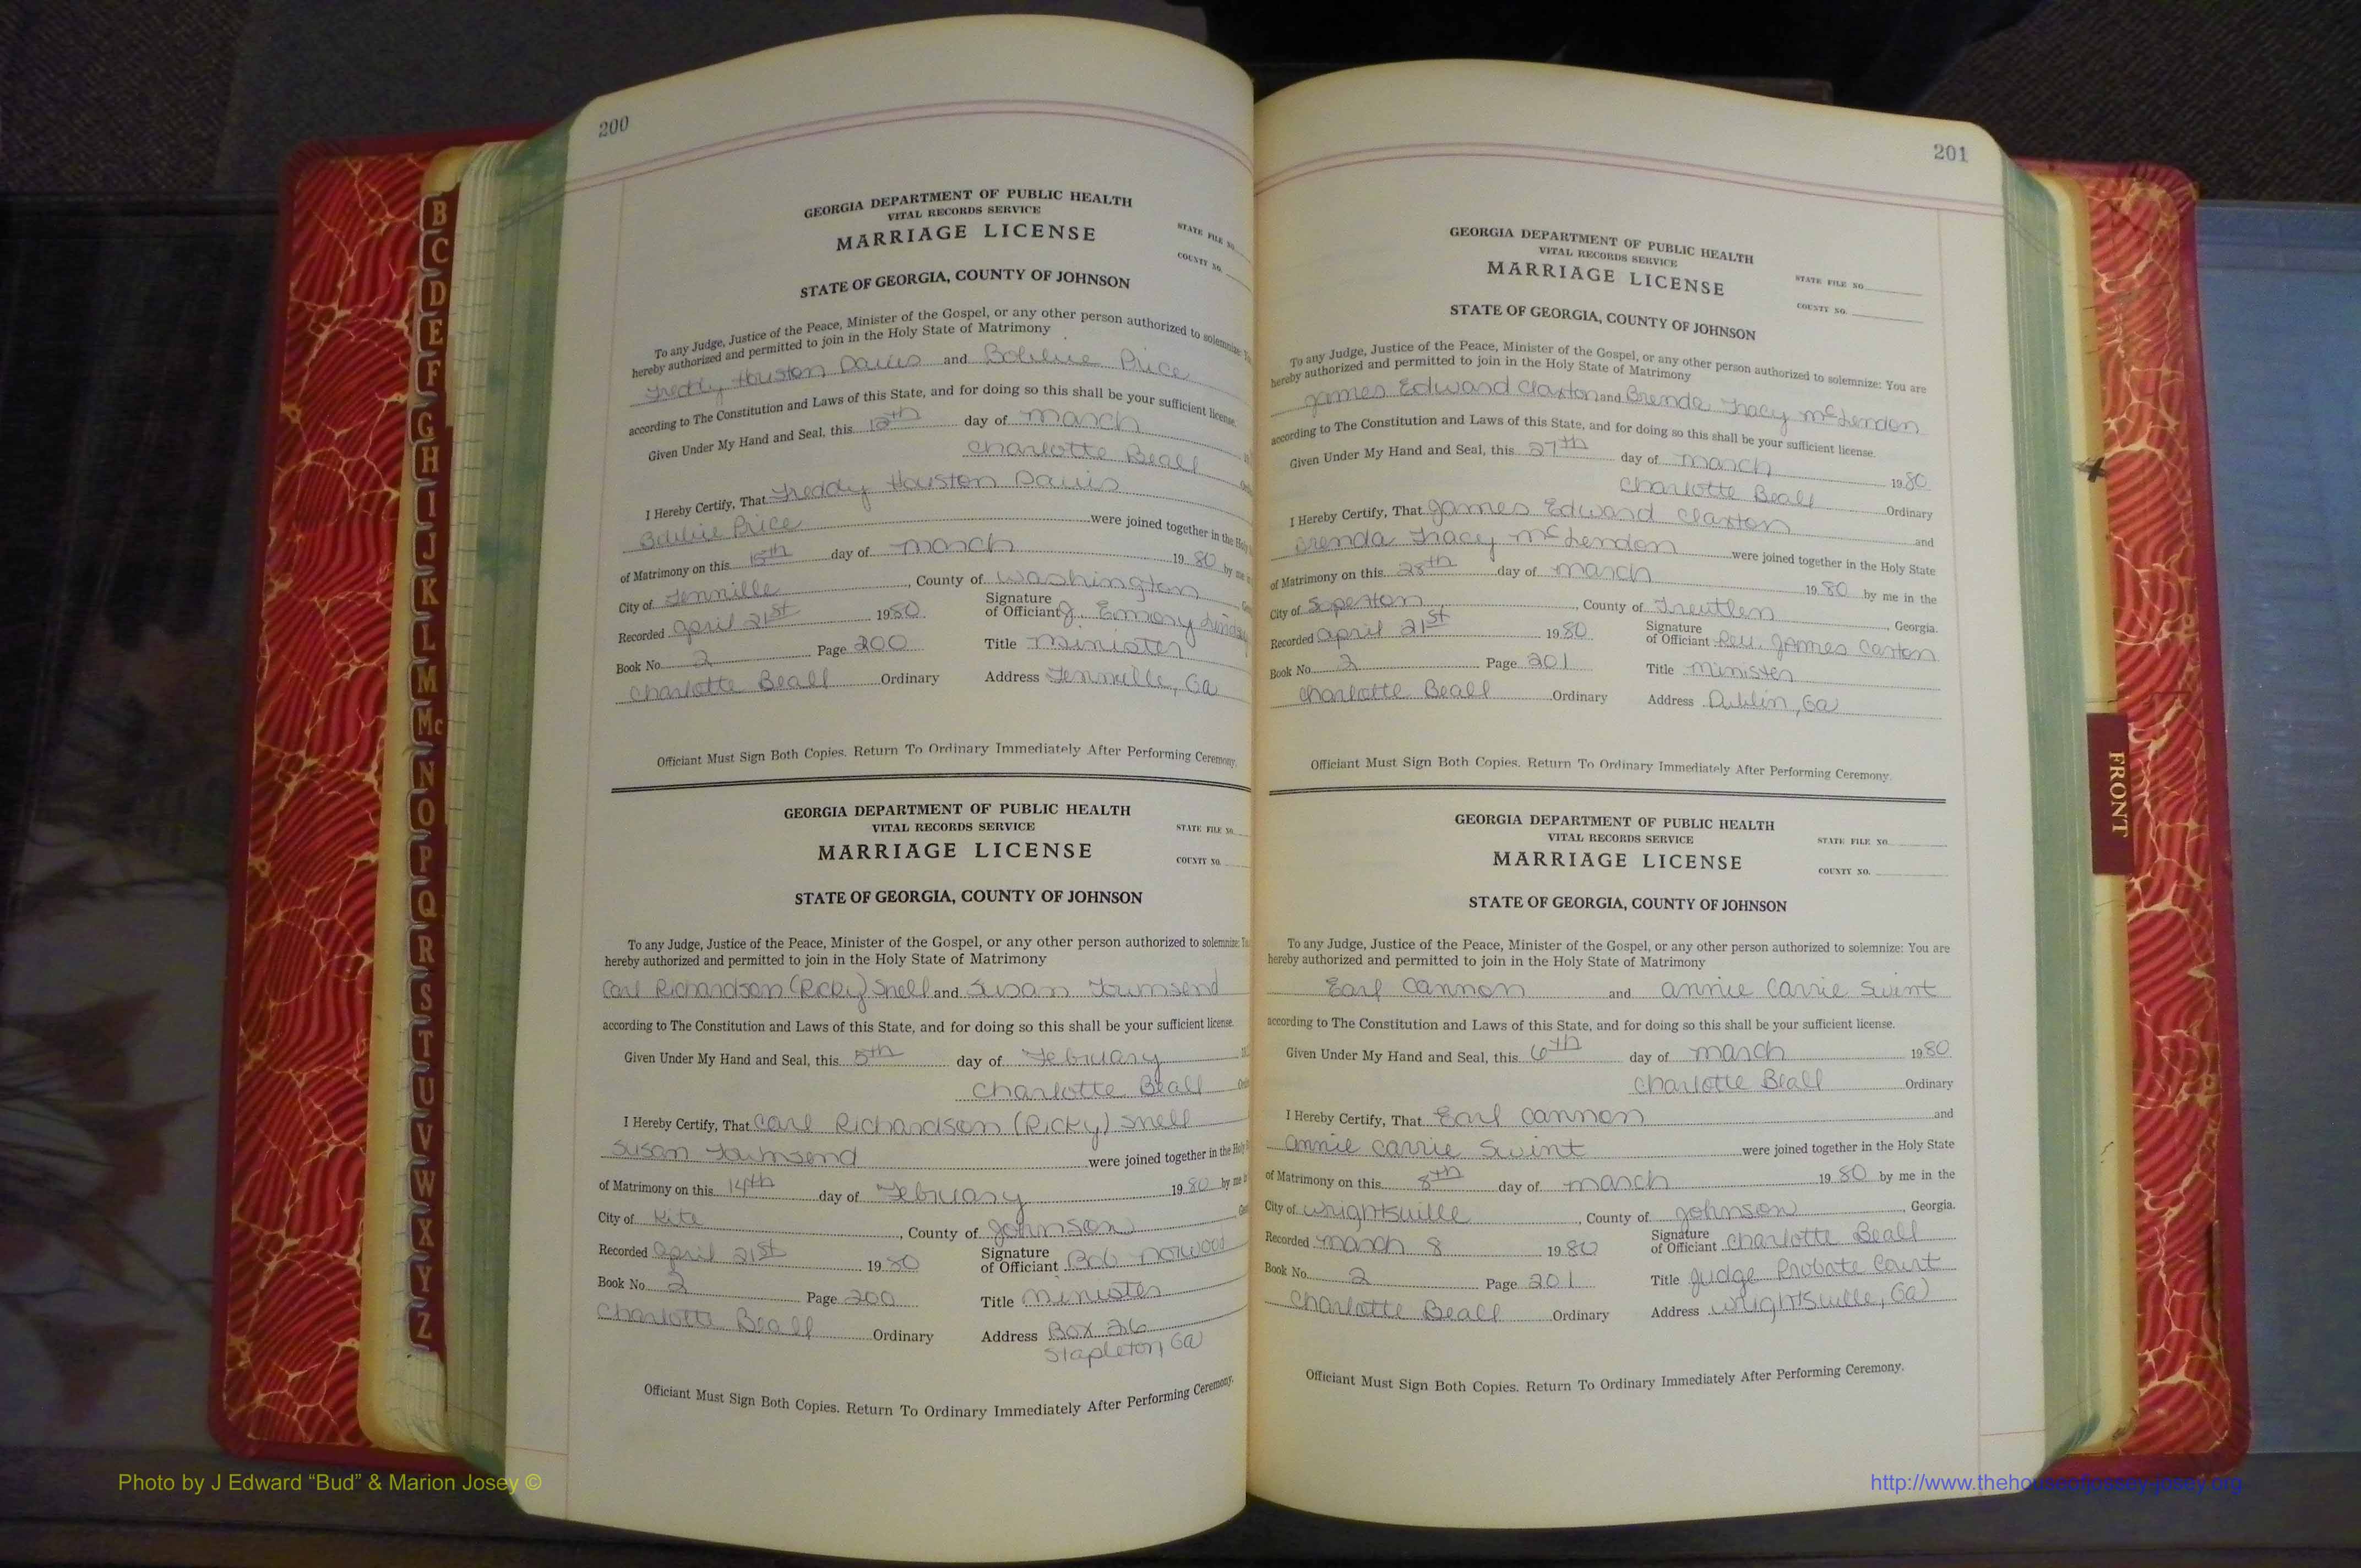 200
GEORGIA DEPARTMENT OF PUBLIC HEALTH
VITAL RECORDS SERVICE
MARRIAGE LICENSE
STATE FILE NO.
COUNTY NO.
STATE OF GEORGIA, COUNTY OF JOHNSON
To any Judge, Justice of the Peace, Minister of the Gospel, or any other person authorized to solemnize:
hereby authorized and permitted to join in the Holy State of Matrimony
Freddy Houston Davis and Bobbie Price
according to The Constitution and Laws of this State, and for doing so this shall be your sufficient license.
Given Under My Hand and Seal, this 12th day of March
Charlotte Beall
I Hereby Certify, That Freddy Houston Davis
Bobbie Price were joined together in the Holy
of Matrimony on this 15th day of March 1980 by me
City of Tennille, County of Washington
Recorded April 21st 1980 Signature of Officiant J. Emory
Book No. 2 Page 200 Title Minister
Charlotte Beall Ordinary Address Tennille, Ga
Officiant Must Sign Both Copies. Return To Ordinary Immediately After Performing Ceremony.
GEORGIA DEPARTMENT OF PUBLIC HEALTH
VITAL RECORDS SERVICE
MARRIAGE LICENSE
STATE FILE NO.
COUNTY NO.
STATE OF GEORGIA, COUNTY OF JOHNSON
To any Judge, Justice of the Peace, Minister of the Gospel, or any other person authorized to solemnize:
hereby authorized and permitted to join in the Holy State of Matrimony
Carl Richardson (Ricky) Snell and Susan Townsend
according to The Constitution and Laws of this State, and for doing so this shall be your sufficient license.
Given Under My Hand and Seal, this 5th day of February
Charlotte Beall
I Hereby Certify, That Carl Richardson (Ricky) Snell
Susan Townsend were joined together in the
of Matrimony on this 14th day of February 1980 by me
City of Kite, County of Johnson
Recorded April 21st 1980 Signature of Officiant Bob Norwood
Book No. 2 Page 200 Title Minister
Charlotte Beall Ordinary Address Box 26
Stapleton, Ga
Officiant Must Sign Both Copies. Return To Ordinary Immediately After Performing Ceremony.
201
GEORGIA DEPARTMENT OF PUBLIC HEALTH
VITAL RECORDS SERVICE
MARRIAGE LICENSE
STATE FILE NO.
COUNTY NO.
STATE OF GEORGIA, COUNTY OF JOHNSON
To any Judge, Justice of the Peace, Minister of the Gospel, or any other person authorized to solemnize: You are
hereby authorized and permitted to join in the Holy State of Matrimony
James Edward Claxton and Brenda Tracy McLendon
according to The Constitution and Laws of this State, and for doing so this shall be your sufficient license.
Given Under My Hand and Seal, this 27th day of March 1980
Charlotte Beall Ordinary
I Hereby Certify, That James Edward Claxton and
Brenda Tracy McLendon were joined together in the Holy State
of Matrimony on this 28th day of March 1980 by me in the
City of Soperton, County of Treutlen, Georgia.
Recorded April 21st 1980 Signature of Officiant Rev. James Carton
Book No. 2 Page 201 Title Minister
Charlotte Beall Ordinary Address Dublin, Ga
Officiant Must Sign Both Copies. Return To Ordinary Immediately After Performing Ceremony.
GEORGIA DEPARTMENT OF PUBLIC HEALTH
VITAL RECORDS SERVICE
MARRIAGE LICENSE
STATE FILE NO.
COUNTY NO.
STATE OF GEORGIA, COUNTY OF JOHNSON
To any Judge, Justice of the Peace, Minister of the Gospel, or any other person authorized to solemnize: You are
hereby authorized and permitted to join in the Holy State of Matrimony
Earl Cannon and Annie Carrie Swint
according to The Constitution and Laws of this State, and for doing so this shall be your sufficient license.
Given Under My Hand and Seal, this 6th day of March 1980
Charlotte Beall Ordinary
I Hereby Certify, That Earl Cannon and
Annie Carrie Swint were joined together in the Holy State
of Matrimony on this 8th day of March 1980 by me in the
City of Wrightsville, County of Johnson, Georgia.
Recorded March 8 1980 Signature of Officiant Charlotte Beall
Book No. 2 Page 201 Title Judge Probate Court
Charlotte Beall Ordinary Address Wrightsville, Ga
Officiant Must Sign Both Copies. Return To Ordinary Immediately After Performing Ceremony.
B
C
D
E
F
G
H
I
J
K
L
M
Mc
N
O
P
Q
R
S
T
U
V
W
X
Y
Z
FRONT
Photo by J Edward “Bud” & Marion Josey ©
http://www.thehouseofjossey-josey.org